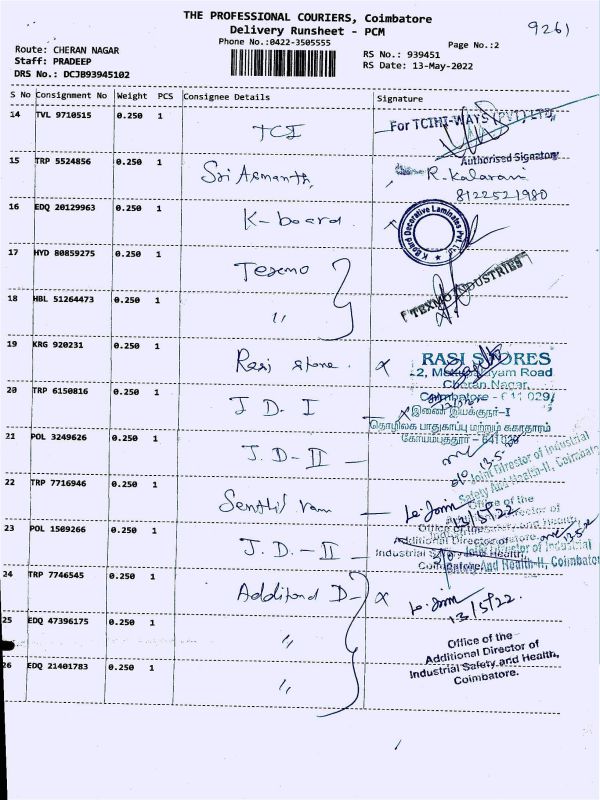 THE PROFESSIONAL COURIERS, Coimbatore
Delivery Runsheet - PCM
Phone No.:0422-3505555
9261
Page No.:2
Route: CHERAN NAGAR
Staff: PRADEEP
DRS No.: DCJB93945102
RS No.: 939451
RS Date: 13-May-2022
S No Consignment No Weight PCS Consignee Details Signature
14 TVL 9710515 0.250 1 TCI
For TCIHI-WAYS (PVT) LTD.
Authorised Signatory
15 TRP 5524856 0.250 1 Sri Asmanth
R. Kalarani
8122521980
16 EDQ 20129963 0.250 1 K-board
K Board Decorative Laminates Pvt. Ltd.
17 HYD 80859275 0.250 1 Texmo
TEXMO INDUSTRIES
18 HBL 51264473 0.250 1 "
19 KRG 920231 0.250 1 Rasi store.
RASI STORES
Cheran Nagar,
Coimbatore - 641 029
20 TRP 6150816 0.250 1 J D. I
இணை இயக்குநர்-I
தொழிலக பாதுகாப்பு மற்றும் சுகாதாரம்
கோயம்புத்தூர் - 641
21 POL 3249626 0.250 1 J. D - II
13.5
Joint Director of Industrial
Safety And Health-II, Coimbatore
22 TRP 7716946 0.250 1 Senthil ram
13/5/22
Office of the
Additional Director of
Industrial Safety and Health,
Coimbatore.
23 POL 1509266 0.250 1 J. D. - II
Joint Director of Industrial
Safety And Health-II, Coimbatore
24 TRP 7746545 0.250 1 Additond D-
13/5/22.
25 EDQ 47396175 0.250 1 "
Office of the
Additional Director of
Industrial Safety and Health,
Coimbatore.
26 EDQ 21401783 0.250 1 "